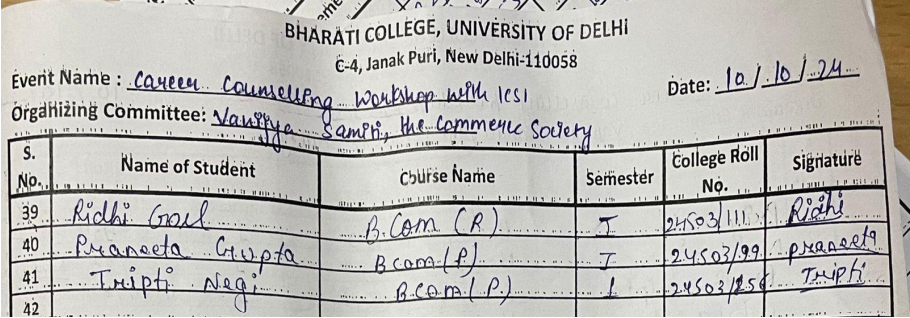 BHARATI COLLEGE, UNIVERSITY OF DELHI
C-4, Janak Puri, New Delhi-110058
Event Name : Career Counselling Workshop with ICSI Date: 10/10/24
Organizing Committee: Vanijya Samiti, the Commerce Society
S. No. Name of Student Course Name Semester College Roll No. Signature
39 Ridhi Goel B.Com (R) I 24503/111 Ridhi
40 Praneeta Gupta Bcom(P) I 24503/99 praneeta
41 Tripti Negi B.COM(P.) I 24503/256 Tripti
42